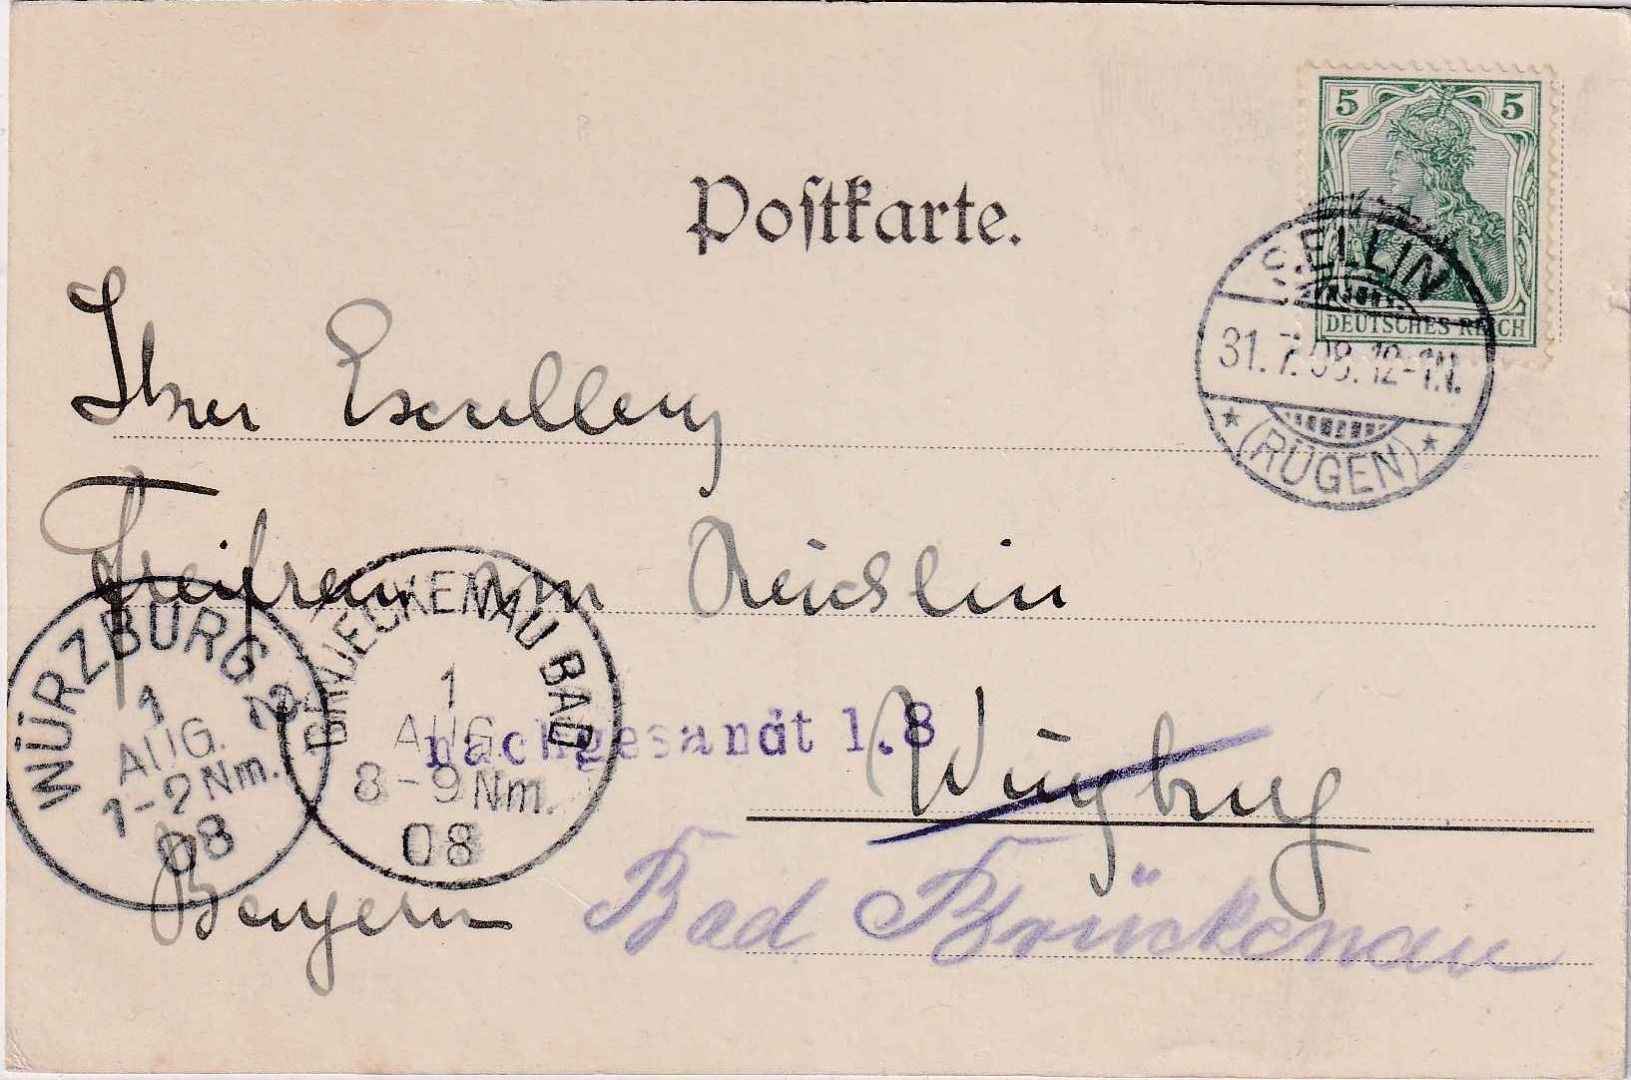 5 5
DEUTSCHES REICH
SELLIN
31.7.08.12-1N.
* (RÜGEN) *
Postkarte.
Ihrer Excellenz
Freifrau von Reichlin
WÜRZBURG 2
1
AUG.
1-2Nm.
08
BRUECKENAU BAD
1
AUG
8-9Nm.
08
nachgesandt 1.8
Würzburg
Bayern
Bad Brückenau